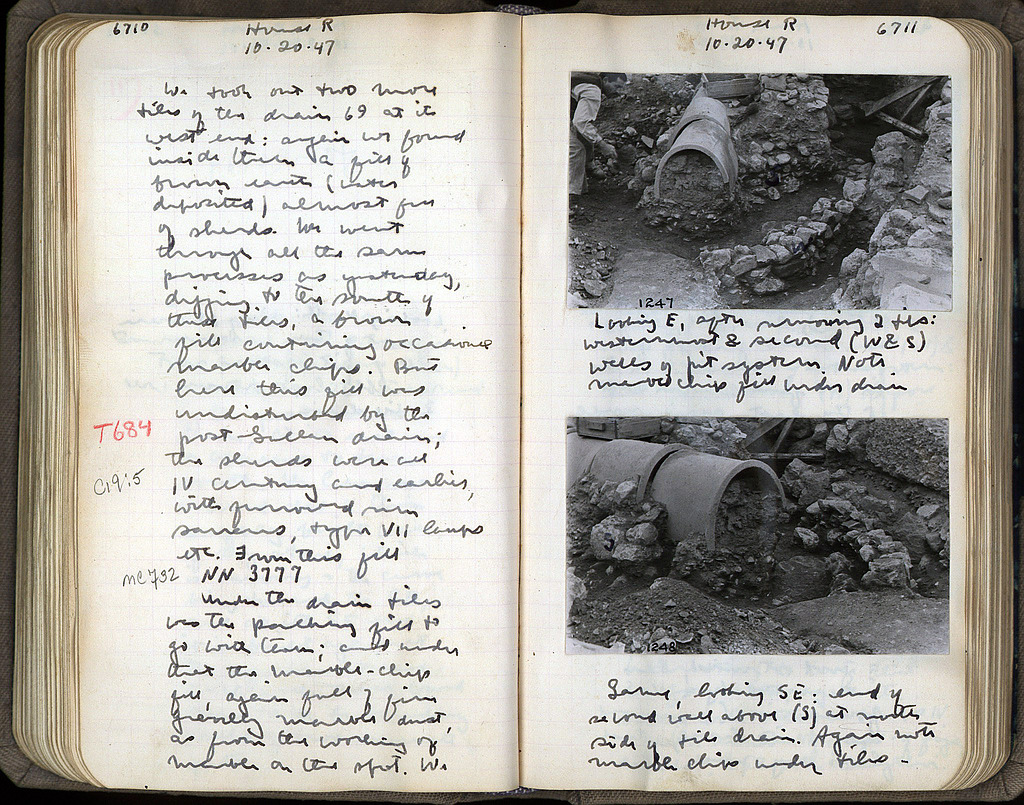 6710
House R
10-20-47
We took out two more
tiles of the drain 69 at its
west end: again we found
inside them a fill of
brown earth (water
deposited) almost full
of sherds. We went
through all the same
processes as yesterday,
digging to the south of
these tiles, a brown
fill containing occasional
marble chips. But
here this fill was
undisturbed by the
post Sullan drain;
T684
the sherds were all
C19:5
IV century and earlier,
with furrowed rim
saucers, type VII lamps
etc. From this fill
MC 732
NN 3777
Under the drain tiles
was the packing fill to
go with them; and under
that the marble-chip
fill, again full of fine
gravelly marble dust,
as from the working of
marble on the spot. We
House R
10-20-47
6711
1247
Looking E, after removing 2 tiles:
westernmost & second (W & S)
walls of pit system. Note
marble chip fill under drain
1248
Same, looking SE: end of
second wall above (S) at
side of tile drain. Again note
marble chips under tiles -